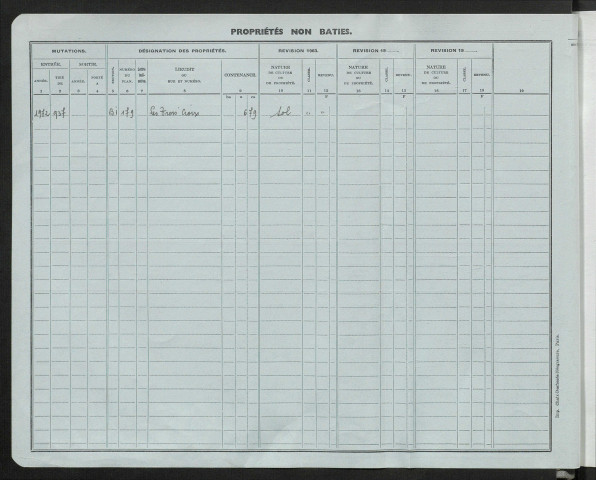 PROPRIÉTÉS NON BATIES.
MUTATIONS. DÉSIGNATION DES PROPRIÉTÉS. REVISION 1963. REVISION 19 REVISION 19
ENTRÉE. SORTIE. SECTION. NUMÉRO DU PLAN. LIEUDIT OU RUE ET NUMÉRO. CONTENANCE. NATURE DE CULTURE OU DE PROPRIÉTÉ. CLASSE. REVENU. NATURE DE CULTURE OU DE PROPRIÉTÉ. CLASSE. REVENU. NATURE DE CULTURE OU DE PROPRIÉTÉ. CLASSE. REVENU.
ANNÉE. TIRÉ DE ANNÉE. PORTÉ A
1 2 3 4 5 6 7 8 9 10 11 12 13 14 15 16 17 18 19
ha a ca F F F
1972 927 BI 179 Les Trois Croix 679 Sol " "